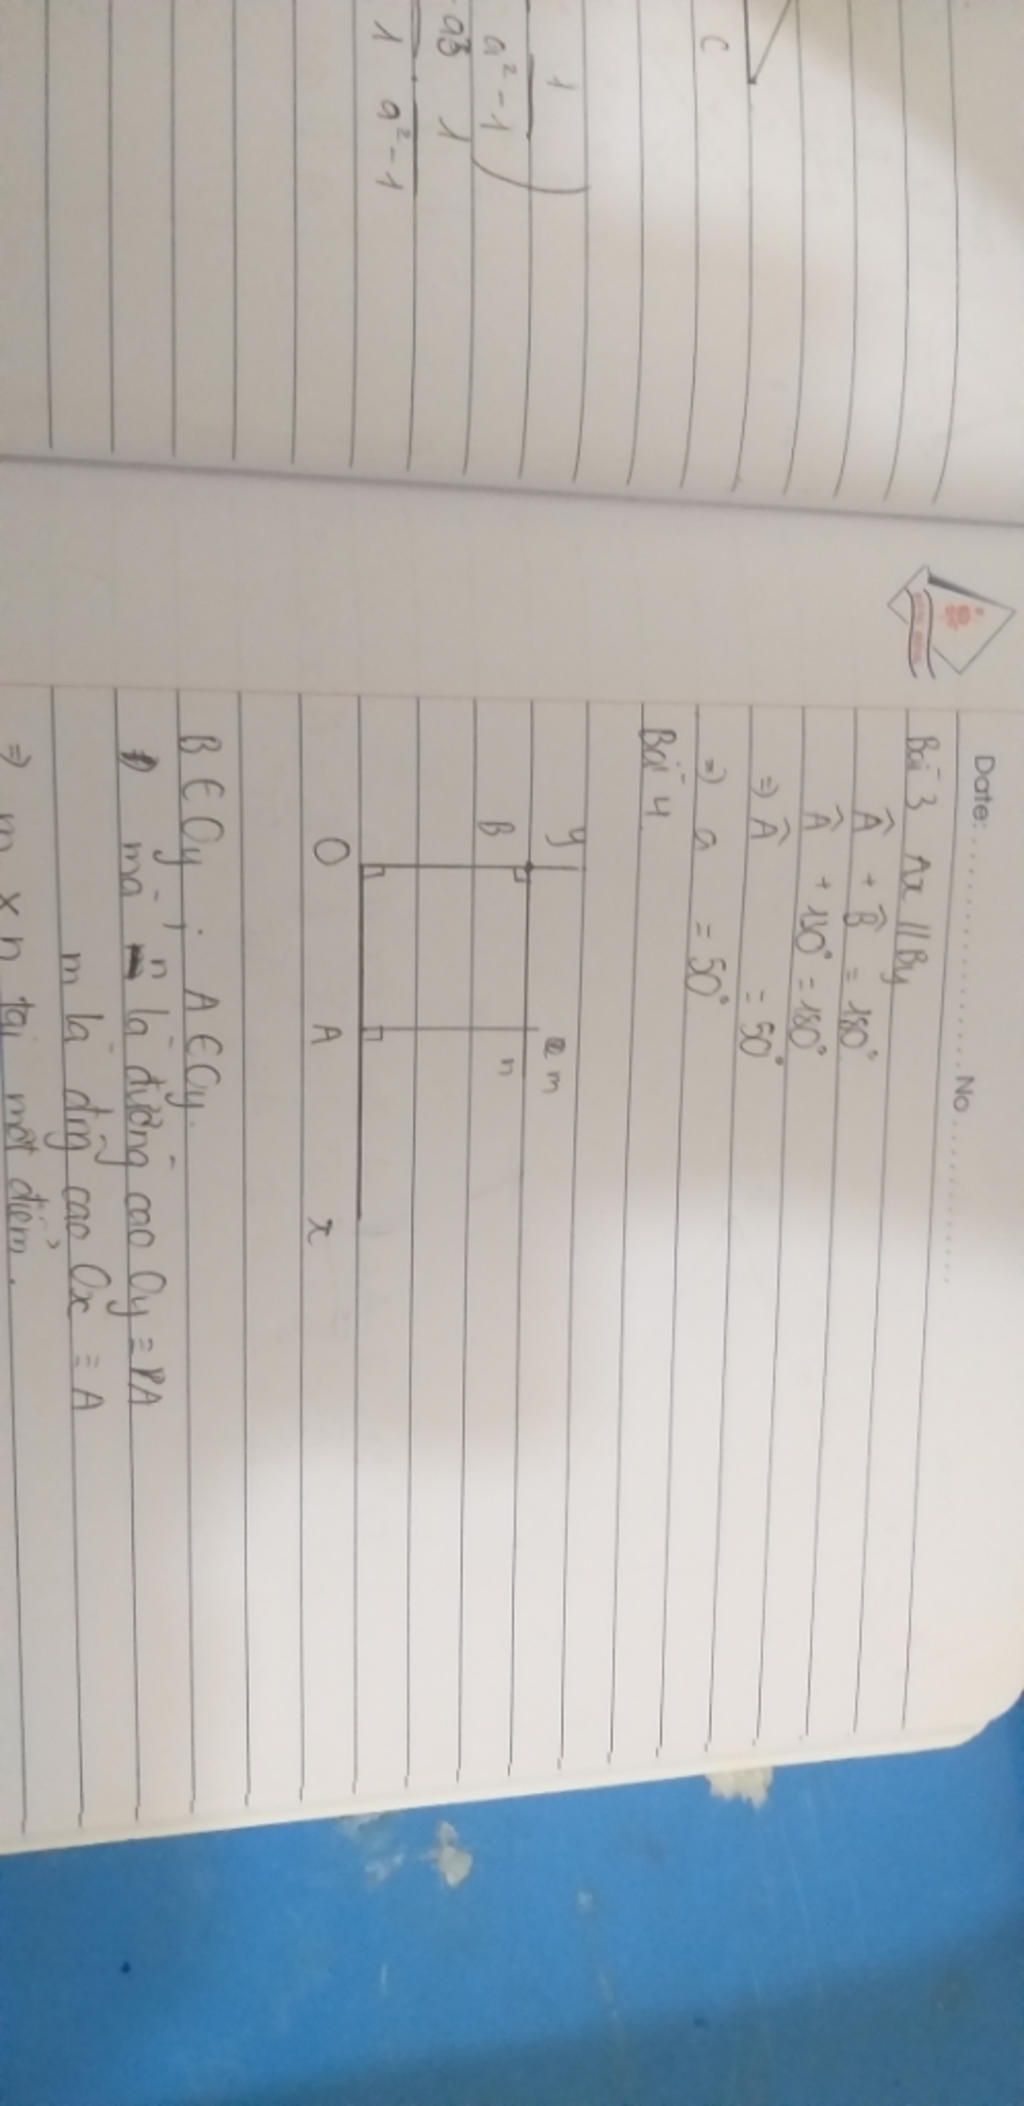 C
1
a² - 1 )
a3 1
1 a² - 1
Date: No
Bài 3 Ax // By
Â + B̂ = 180°
Â + 130° = 180°
=) Â = 50°
=) a = 50°
Bài 4
y
m
B
n
O A x
B ∈ Oy ; A ∈ Oy.
mà n là đường cao Oy =
m là đg cao Ox = A
=) m x n tại một điểm.